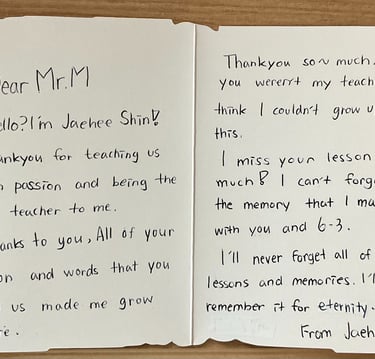 ear Mr.M
ello? I'm Jaehee Shin!
ankyou for teaching us
passion and being the
teacher to me.
anks to you, All of your
on and words that you
us made me grow
re.
Thankyou so~ much.
you wererrt my teach
think I couldn't grow u
this.
I miss your lesson
much! I can't forg
the memory that I ma
with you and 6-3.
I'll never forget all of
lessons and memories. I'l
remember it for eternity.
From Jaeh